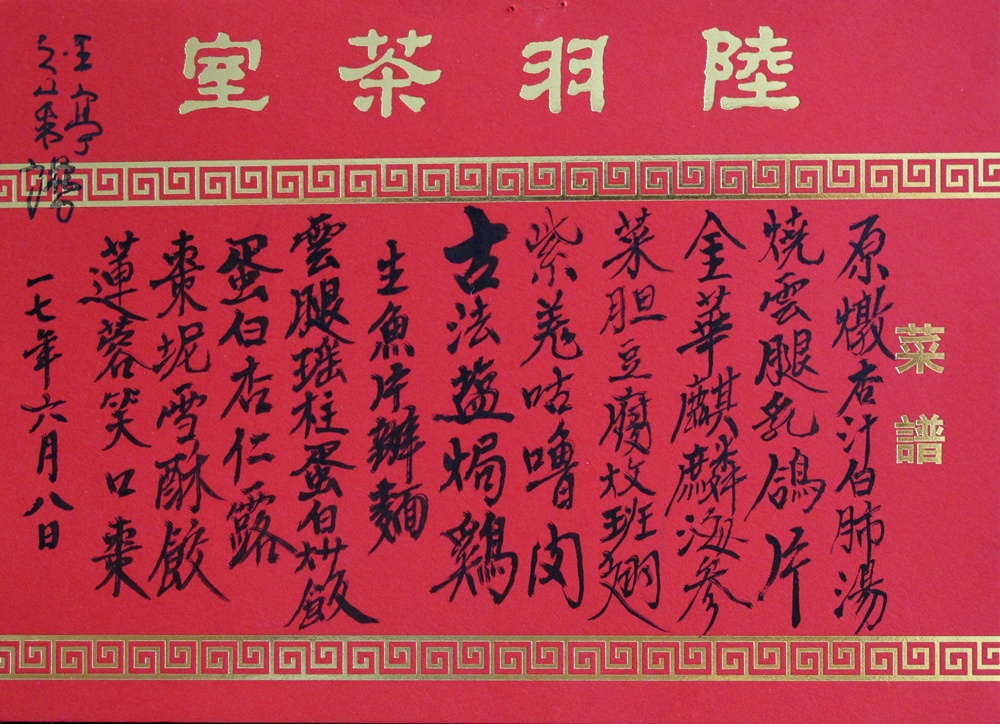 陸羽茶室
菜譜
原燉杏汁白肺湯
燒雲腿乳鴿片
金華麒麟海參
菜胆豆腐炆班翅
紫羗咕嚕肉
古法鹽焗鷄
生魚片辦麵
雲腿瑶柱蛋白炒飯
蛋白杏仁露
棗坭雪酥餃
蓮蓉笑口棗
一七年六月八日